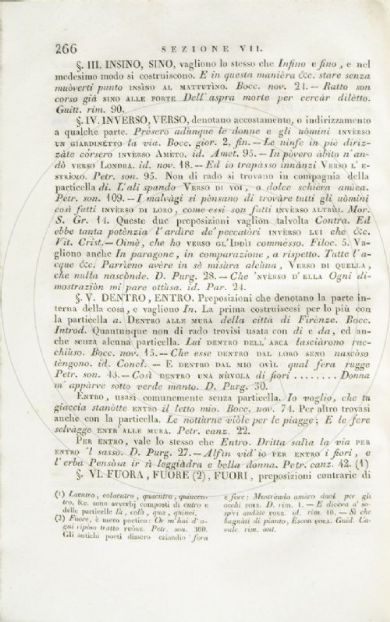 266 SEZIONE VII.
§. III. INSINO, SINO, vagliono lo stesso che Infino e fino, e nel
medesimo modo si costruiscono. E in questa manièra &c. stare senza
muòverti punto INSÌNO AL MATTUTÌNO. Bocc. nov. 21. — Ratto son
corso già SINO ALLE PORTE Dell'aspra morte per cercàr dilètto.
Guitt. rim. 90.
§. IV. INVERSO, VERSO, denotano accostamento, o indirizzamento
a qualche parte. Prèsero adùnque le donne e gli uòmini INVERSO
UN GIARDINÈTTO la via. Bocc. gior. 2. fin. — Le ninfe in piè diriz-
zàte còrsero INVERSO AMÈTO. id. Amet. 95. — In pòvero àbito n'an-
dò VERSO LONDRA. id. nov. 18. — Ed io trapasso innànzi VERSO L'E-
STRÈMO. Petr. son. 95. Non di rado si trovano in compagnia della
particella di. L'ali spando VERSO DI VOI, o dolce schièra amica.
Petr. son. 109. — I malvàgi si pènsano di trovàre tutti gli uòmini
così fatti INVERSO DI LORO, come essi son fatti INVERSO ALTRÙI. Mor.
S. Gr. 14. Queste due preposizioni vagliòn talvolta Contra. Ed
ebbe tanta potènzia l'ardìre de' peccatòri INVERSO LUI che &c.
Vit. Crist. — Oimè, che ho VERSO GL'IDDÌI commesso. Filoc. 5. Va-
gliono anche In paragone, in comparazione, a rispetto. Tutte l'ac-
que &c. Parrièno avère in sè mistùra alcùna, VERSO DI QUELLA,
che nulla nascònde. D. Purg. 28. — Che 'NVERSO D'ELLA Ogni di-
mostraziòn mi pare ottùsa. id. Par. 24.
§. V. DENTRO, ENTRO. Preposizioni che denotano la parte in-
terna della cosa, e vagliono In. La prima costruiscesi per lo più con
la particella a. DENTRO ALLE MURA della città di Firènze. Bocc.
Introd. Quantunque non di rado trovisi usata con di e da, ed an-
che senza alcuna particella. Lui DENTRO DELL'ARCA lasciàrono rac-
chiùso. Bocc. nov. 15. — Che essi DENTRO DAL LORO SENO nascòso
tèngono. id. Concl. — E DENTRO DAL MIO OVÌL qual fera rugge
Petr. son. 45. — Così DENTRO UNA NÙVOLA di fiori ........ Donna
m'appàrve sotto verde manto. D. Purg. 30.
ENTRO, usasi comunemente senza particella. Io voglio, che tu
giaccia stanòtte ENTRO il letto mio. Bocc. nov. 74. Per altro trovasi
anche con la particella. Le nottùrne viòle per le piagge; E le fere
selvàgge ENTR'ALLE MURA. Petr. canz. 22.
PER ENTRO, vale lo stesso che Entro. Dritta salìa la via PER
ENTRO 'L SASSO. D. Purg. 27. — Alfin vid'io PER ENTRO i fiori, e
l'erba Pensòsa ir sì leggiàdra e bella donna. Petr. canz. 42. (1)
§. VI. FUORA, FUORE (2), FUORI, preposizioni contrarie di
(1) Laentro, colaentro, quaentro, quincen-
tro, &c. sono avverbj composti di entro e
delle particelle là, colà, qua, quinci.
(2) Fuore, è meno poetica: Or m'hai d'o-
gni ripòso tratto FUÒRE. Petr. son. 300.
Gli antichi poeti dissero eziandio fora
e fore: